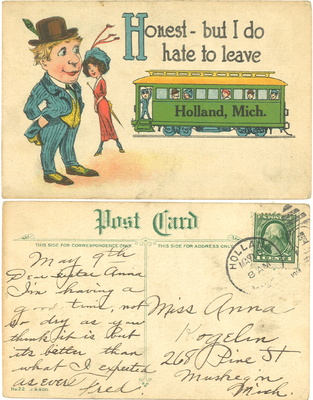 Honest - but I do
hate to leave
Holland, Mich.
Post Card
THIS SIDE FOR CORRESPONDENCE ONLY.
THIS SIDE FOR ADDRESS ONLY.
May 9th
Dear Sister Anna
I'm having a
good time, not
so dry as you
think it is but
its better than
what I expected
as ever Fred.
No 22
HOLLAND
MAY
8 AM
Miss Anna
Rogelin
268 Pine St
Muskegon
Mich.